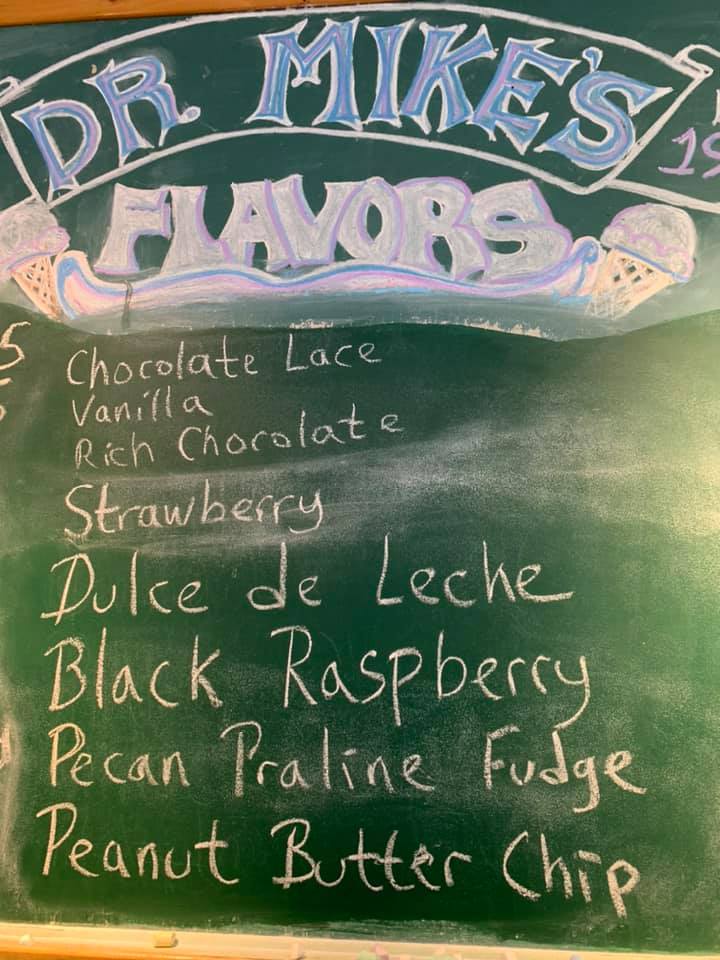 DR. MIKE'S
FLAVORS
Chocolate Lace
Vanilla
Rich Chocolate
Strawberry
Dulce de Leche
Black Raspberry
Pecan Praline Fudge
Peanut Butter Chip